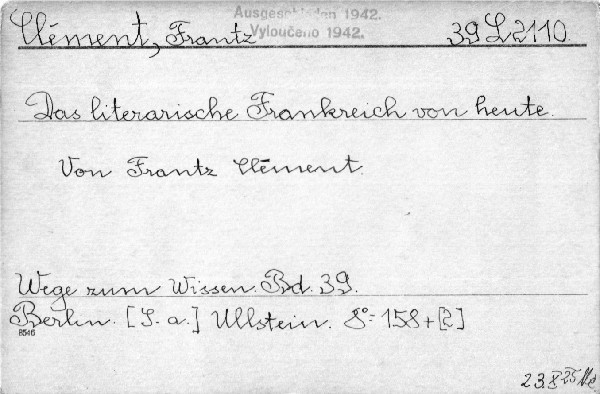 Ausgeschieden 1942.
Vyloučeno 1942.
Clément, Frantz 39 L 2110.
Das literarische Frankreich von heute.
Von Frantz Clément.
Wege zum Wissen. Bd. 39.
Berlin. [S. a.] Ullstein. 8°= 158+[2]
8546
23.X 25